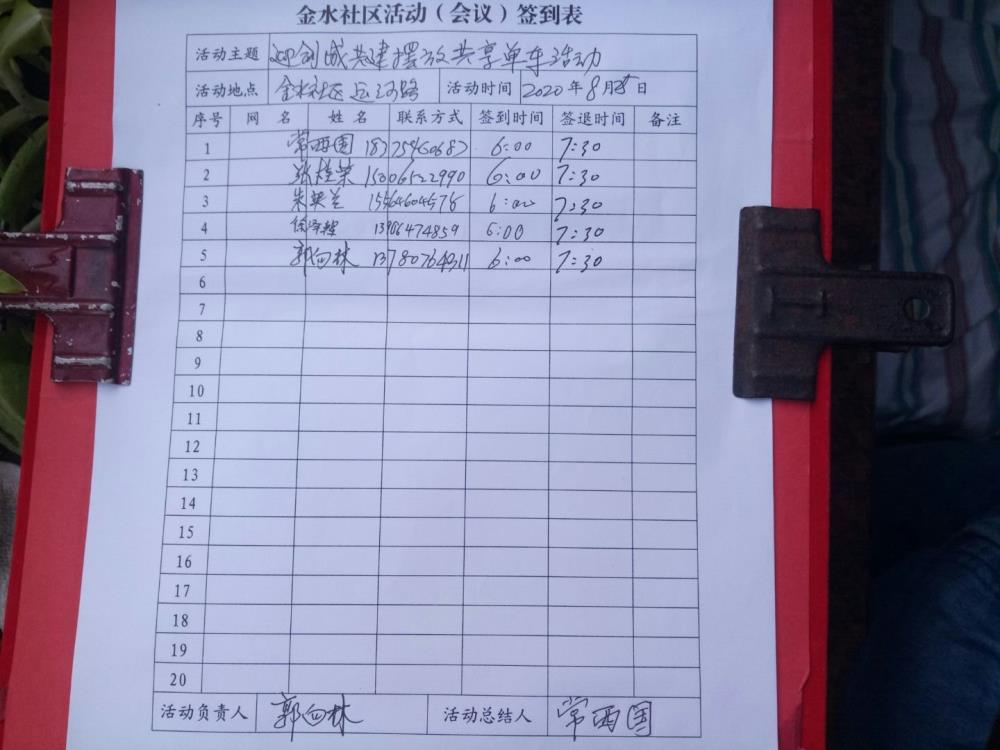 金水社区活动（会议）签到表
活动主题 迎创城共建摆放共享单车活动
活动地点 金水社区运河路 活动时间 2020年8月 日
序号 网 名 姓 名 联系方式 签到时间 签退时间 备注
1 常西国 6:00 7:30
2 张桂荣 15006522990 6:00 7:30
3 朱英兰 6:00 7:30
4 13906474859 6:00 7:30
5 郭向林 13780764311 6:00 7:30
6
7
8
9
10
11
12
13
14
15
16
17
18
19
20
活动负责人 郭向林 活动总结人 常西国